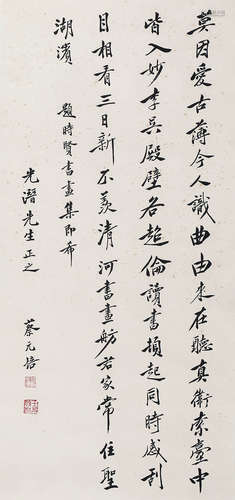 莫因愛古薄今人識曲由来在聽真衛索臺中
皆入妙李吳殿壁各超倫讀書損起同時感刮
目相看三日新不羨清河書畫舫君家常住聖
湖濱
題時賢書畫集即希
光潛先生正之
蔡元培